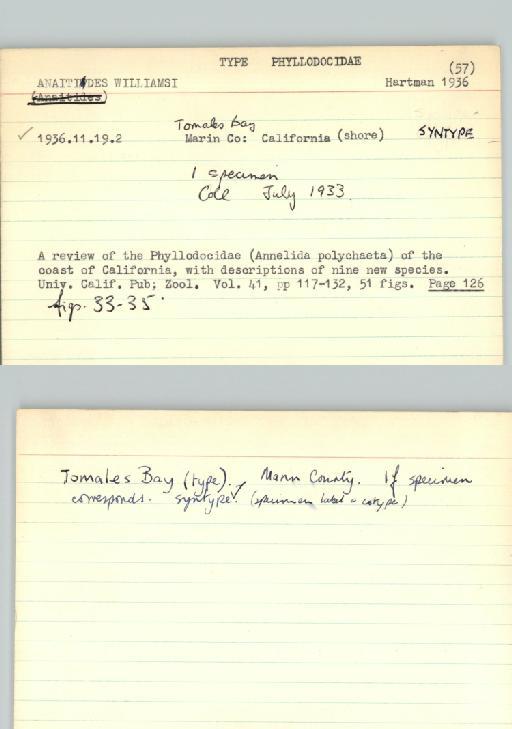 TYPE PHYLLODOCIDAE
(57)
ANAITIDES WILLIAMSI Hartman 1936
(Anaitides)
Tomales Bay
✓ 1936.11.19.2 Marin Co: California (shore) SYNTYPE
1 specimen
Coll July 1933.
A review of the Phyllodocidae (Annelida polychaeta) of the
coast of California, with descriptions of nine new species.
Univ. Calif. Pub; Zool. Vol. 41, pp 117-132, 51 figs. Page 126
figs. 33-35.
Tomales Bay (type). Marin County. 1 of specimen
corresponds. syntype. (specimen label = cotype)